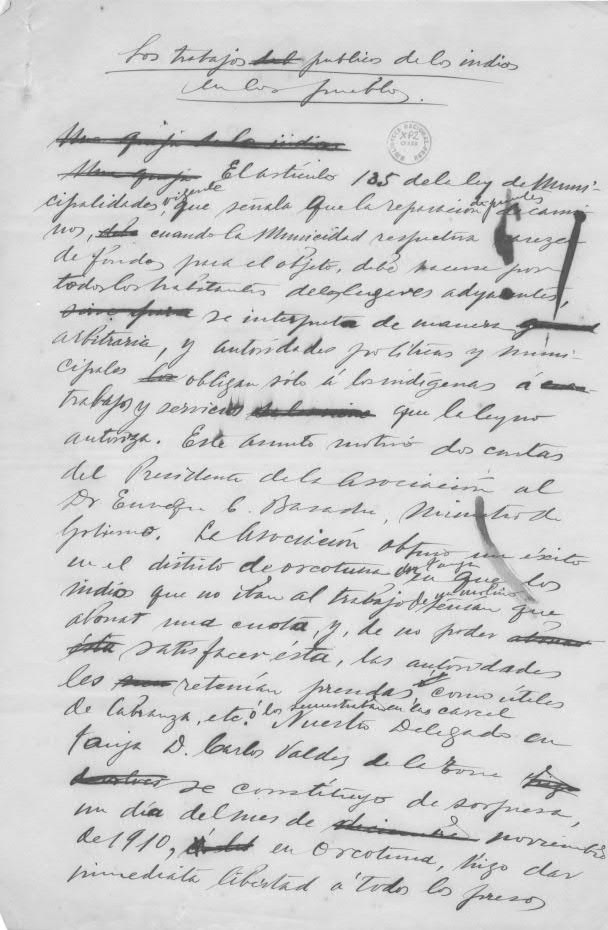 Los trabajos del publics de los indios
en los pueblos.
BIBLIOTECA NACIONAL
Una queja de los indios
Una queja El artículo 135 de la ley de Muni-
cipalidades, vigente, que señala que la reparación de puentes de cami-
nos, cuando la Municidad respectiva carezca
de fondos para el objeto, debe hacerse por
todos los habitantes de los lugares adyacentes,
sirve para se interpreta de manera
arbitraria, y autoridades políticas y muni-
cipales los obligan sólo á los indígenas á
trabajos y servicios que la ley no
autoriza. Este asunto motivó dos cartas
del Presidente de la Asociación al
Dr Enrique C. Basadre, Ministro de
Gobierno. La Asociación obtuvo un éxito
en el distrito de Orcotuna en Jauja ya que los
indios que no iban al trabajo de un molino tenían que
abonar una cuota, y, de no poder abonar
ésta satisfacer ésta, las autoridades
les retenían prendas, como útiles
de labranza, etc. ó los secuestraban en la carcel
Nuestro Delegado en
Jauja D. Carlos Valdez de la Torre hizo
se constituyó de sorpresa,
un día del mes de diciembre noviembre
de 1910, en Orcotuna, hizo dar
inmediata libertad á todos los presos